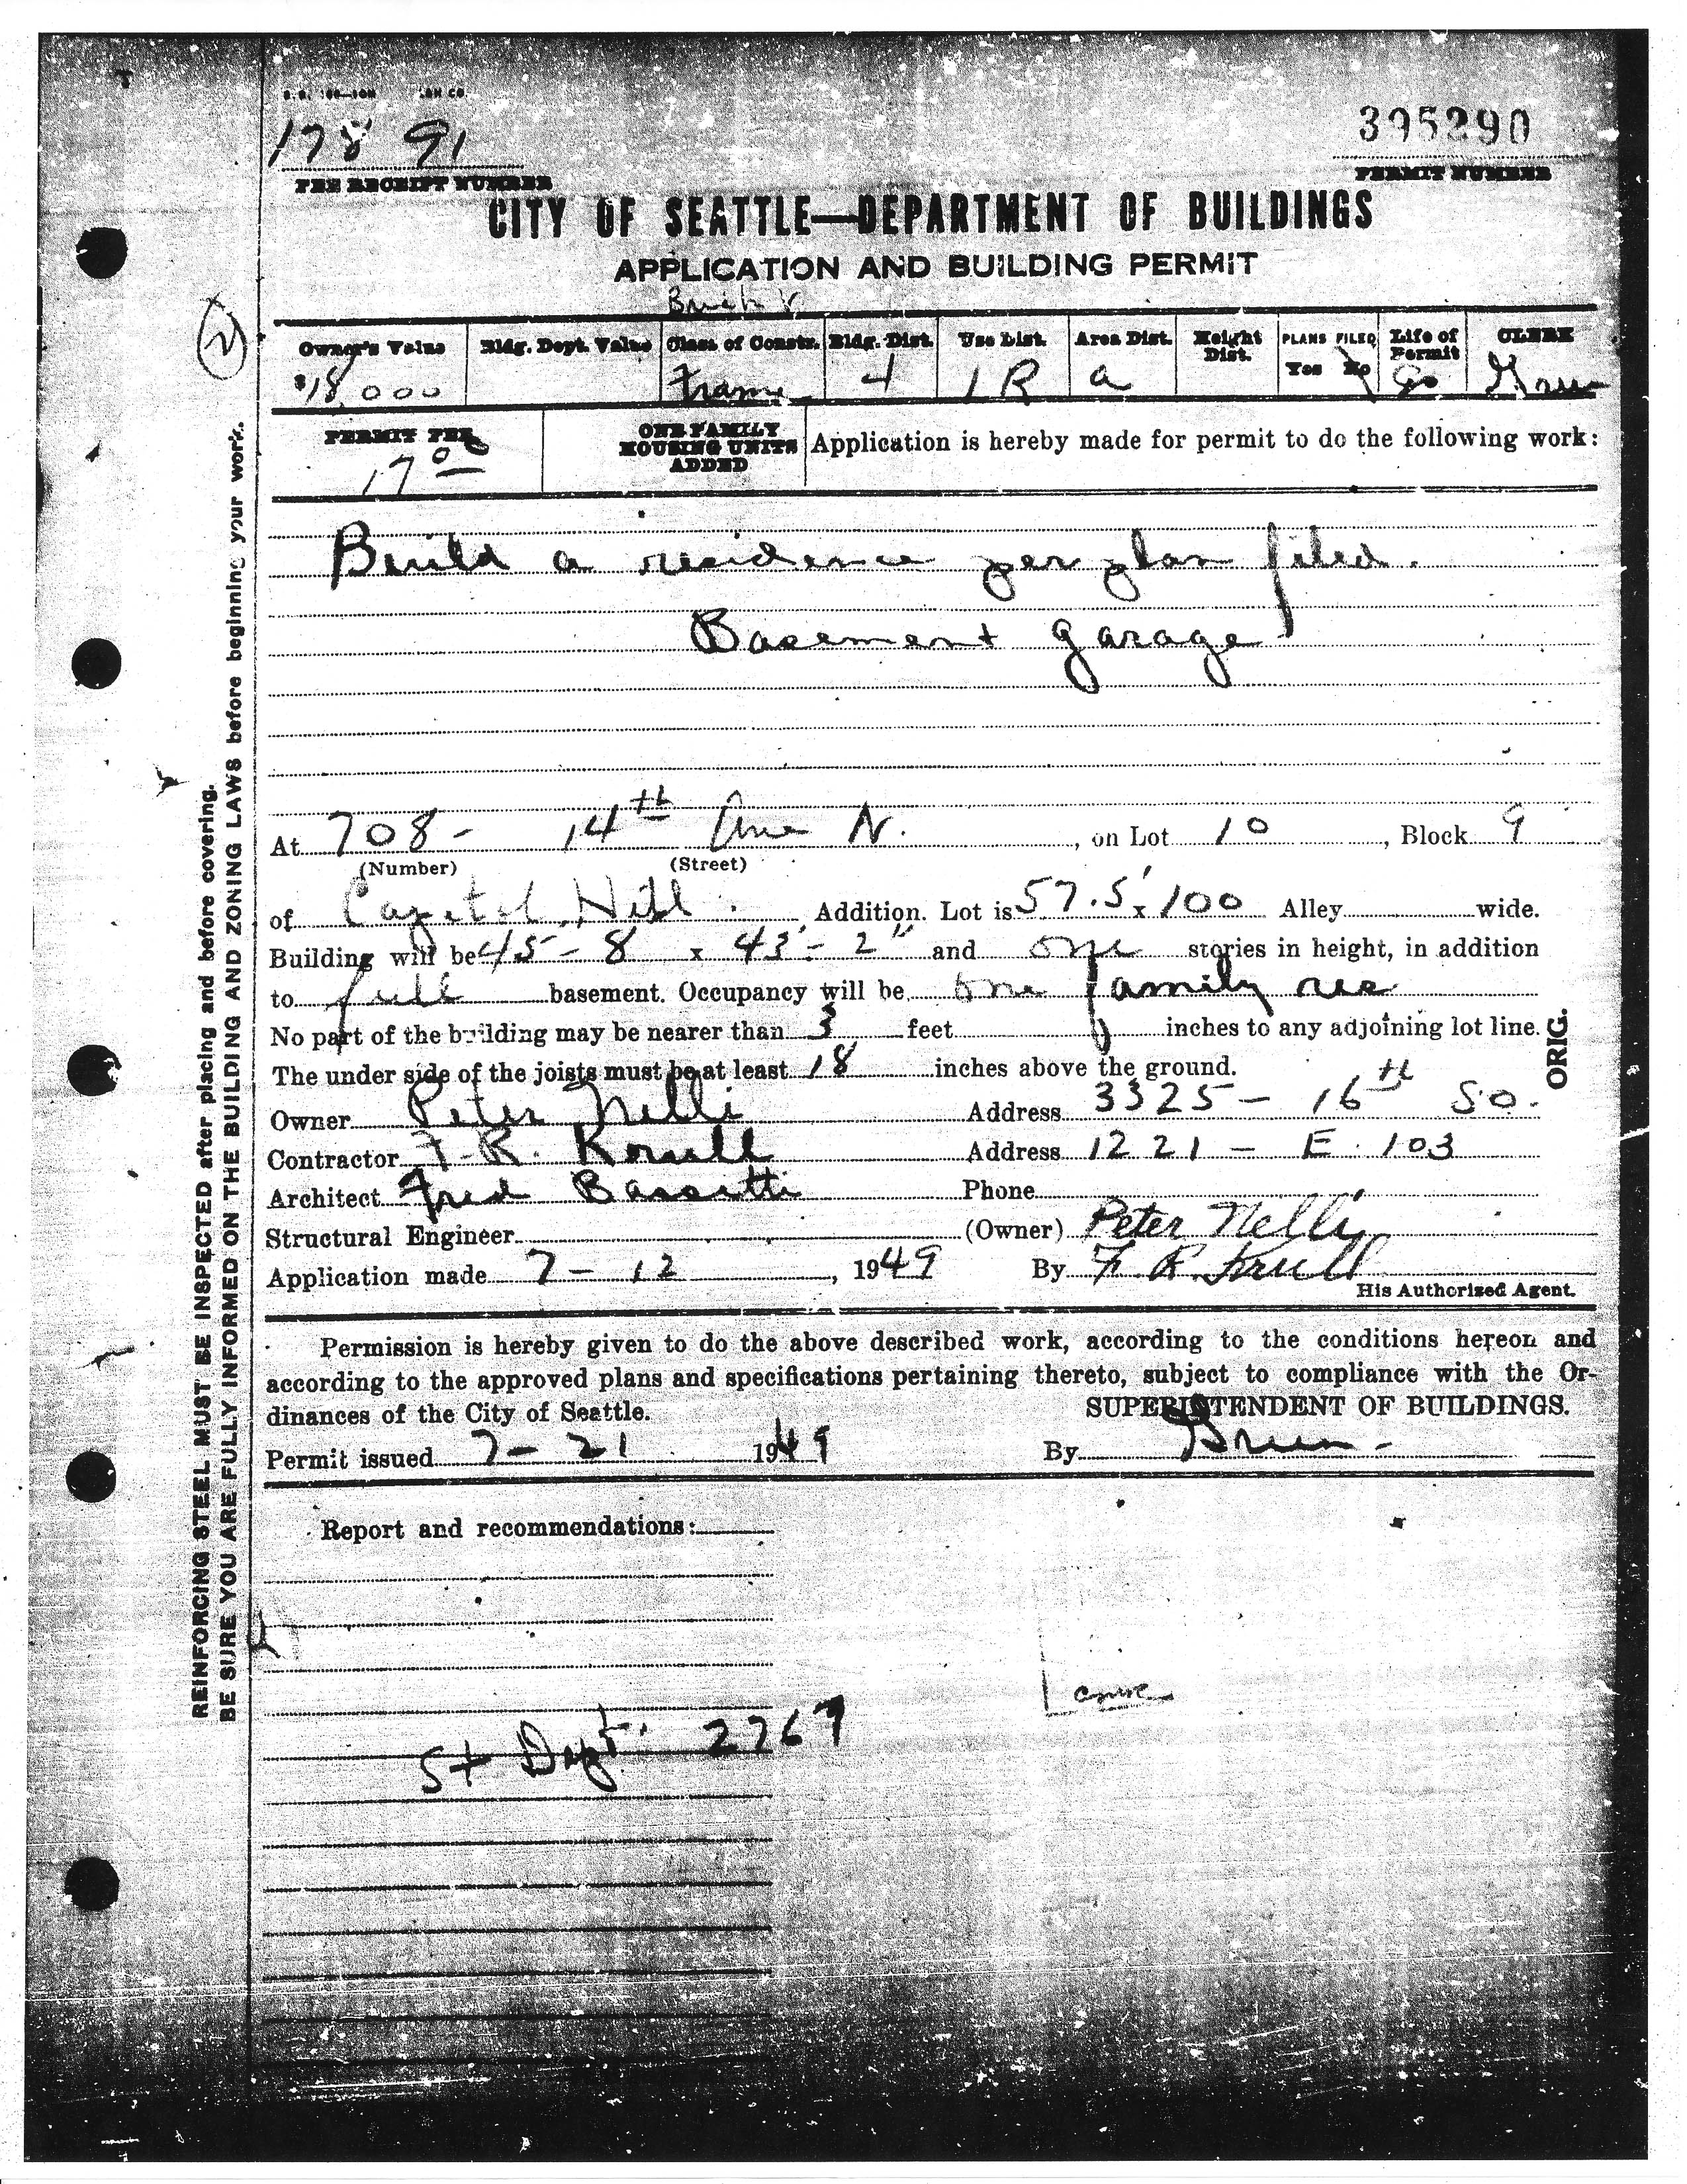 178 91
FEE RECEIPT NUMBER
395290
PERMIT NUMBER
CITY OF SEATTLE—DEPARTMENT OF BUILDINGS
APPLICATION AND BUILDING PERMIT
Brick V
Owner's Value Bldg. Dept. Value Class of Constr. Bldg. Dist. Use Dist. Area Dist. Height Dist. PLANS FILED Yes No Life of Permit CLERK
$18,000 Frame 4 1 R a Green
PERMIT FEE ONE FAMILY HOUSING UNITS ADDED Application is hereby made for permit to do the following work:
17 00
Build a residence per plan filed.
Basement garage
At 708 - 14th Ave N. , on Lot 10 , Block 9
(Number) (Street)
of Capitol Hill. Addition. Lot is 57.5' x 100 Alley wide.
Building will be 45 - 8 x 43' - 2" and one stories in height, in addition
to full basement. Occupancy will be one family res
No part of the building may be nearer than 3 feet inches to any adjoining lot line.
The under side of the joists must be at least 18 inches above the ground.
Owner Peter Nelli Address 3325 - 16th So.
Contractor F. R. Krull Address 1221 - E. 103
Architect Fred Bassetti Phone
Structural Engineer (Owner) Peter Nelli
Application made 7 - 12 , 1949 By F. R. Krull
His Authorized Agent.
Permission is hereby given to do the above described work, according to the conditions hereon and
according to the approved plans and specifications pertaining thereto, subject to compliance with the Or-
dinances of the City of Seattle. SUPERINTENDENT OF BUILDINGS.
Permit issued 7 - 21 1949 By Green
Report and recommendations:
St Dept. 2767
REINFORCING STEEL MUST BE INSPECTED after placing and before covering.
BE SURE YOU ARE FULLY INFORMED ON THE BUILDING AND ZONING LAWS before beginning your work.
ORIG.
2